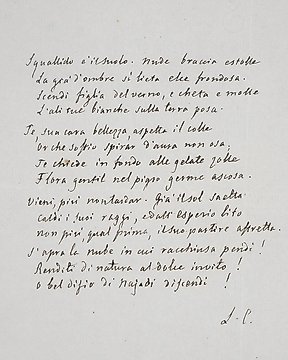 Squallido è il suolo. Nude braccia estolle
La già d'ombre sì lieta elce frondosa.
Scendi figlia del verno, e cheta e molle
L'ali tue bianche sulla terra posa.
Te, sua cara bellezza, aspetta il colle
Or che soffio spirar d'aura non osa;
Te chiede in fondo alle gelate zolle
Flora gentil nel pigro germe ascosa.
Vieni, più non tardar. Già il sol saetta
caldi i suoi raggi, e dall'esperio lito
non più qual prima, il suo partire affretta.
S'apra la nube in cui racchiusa pendi!
Renditi di natura al dolce invito!
O bel disio di Najadi discendi!
L. C.